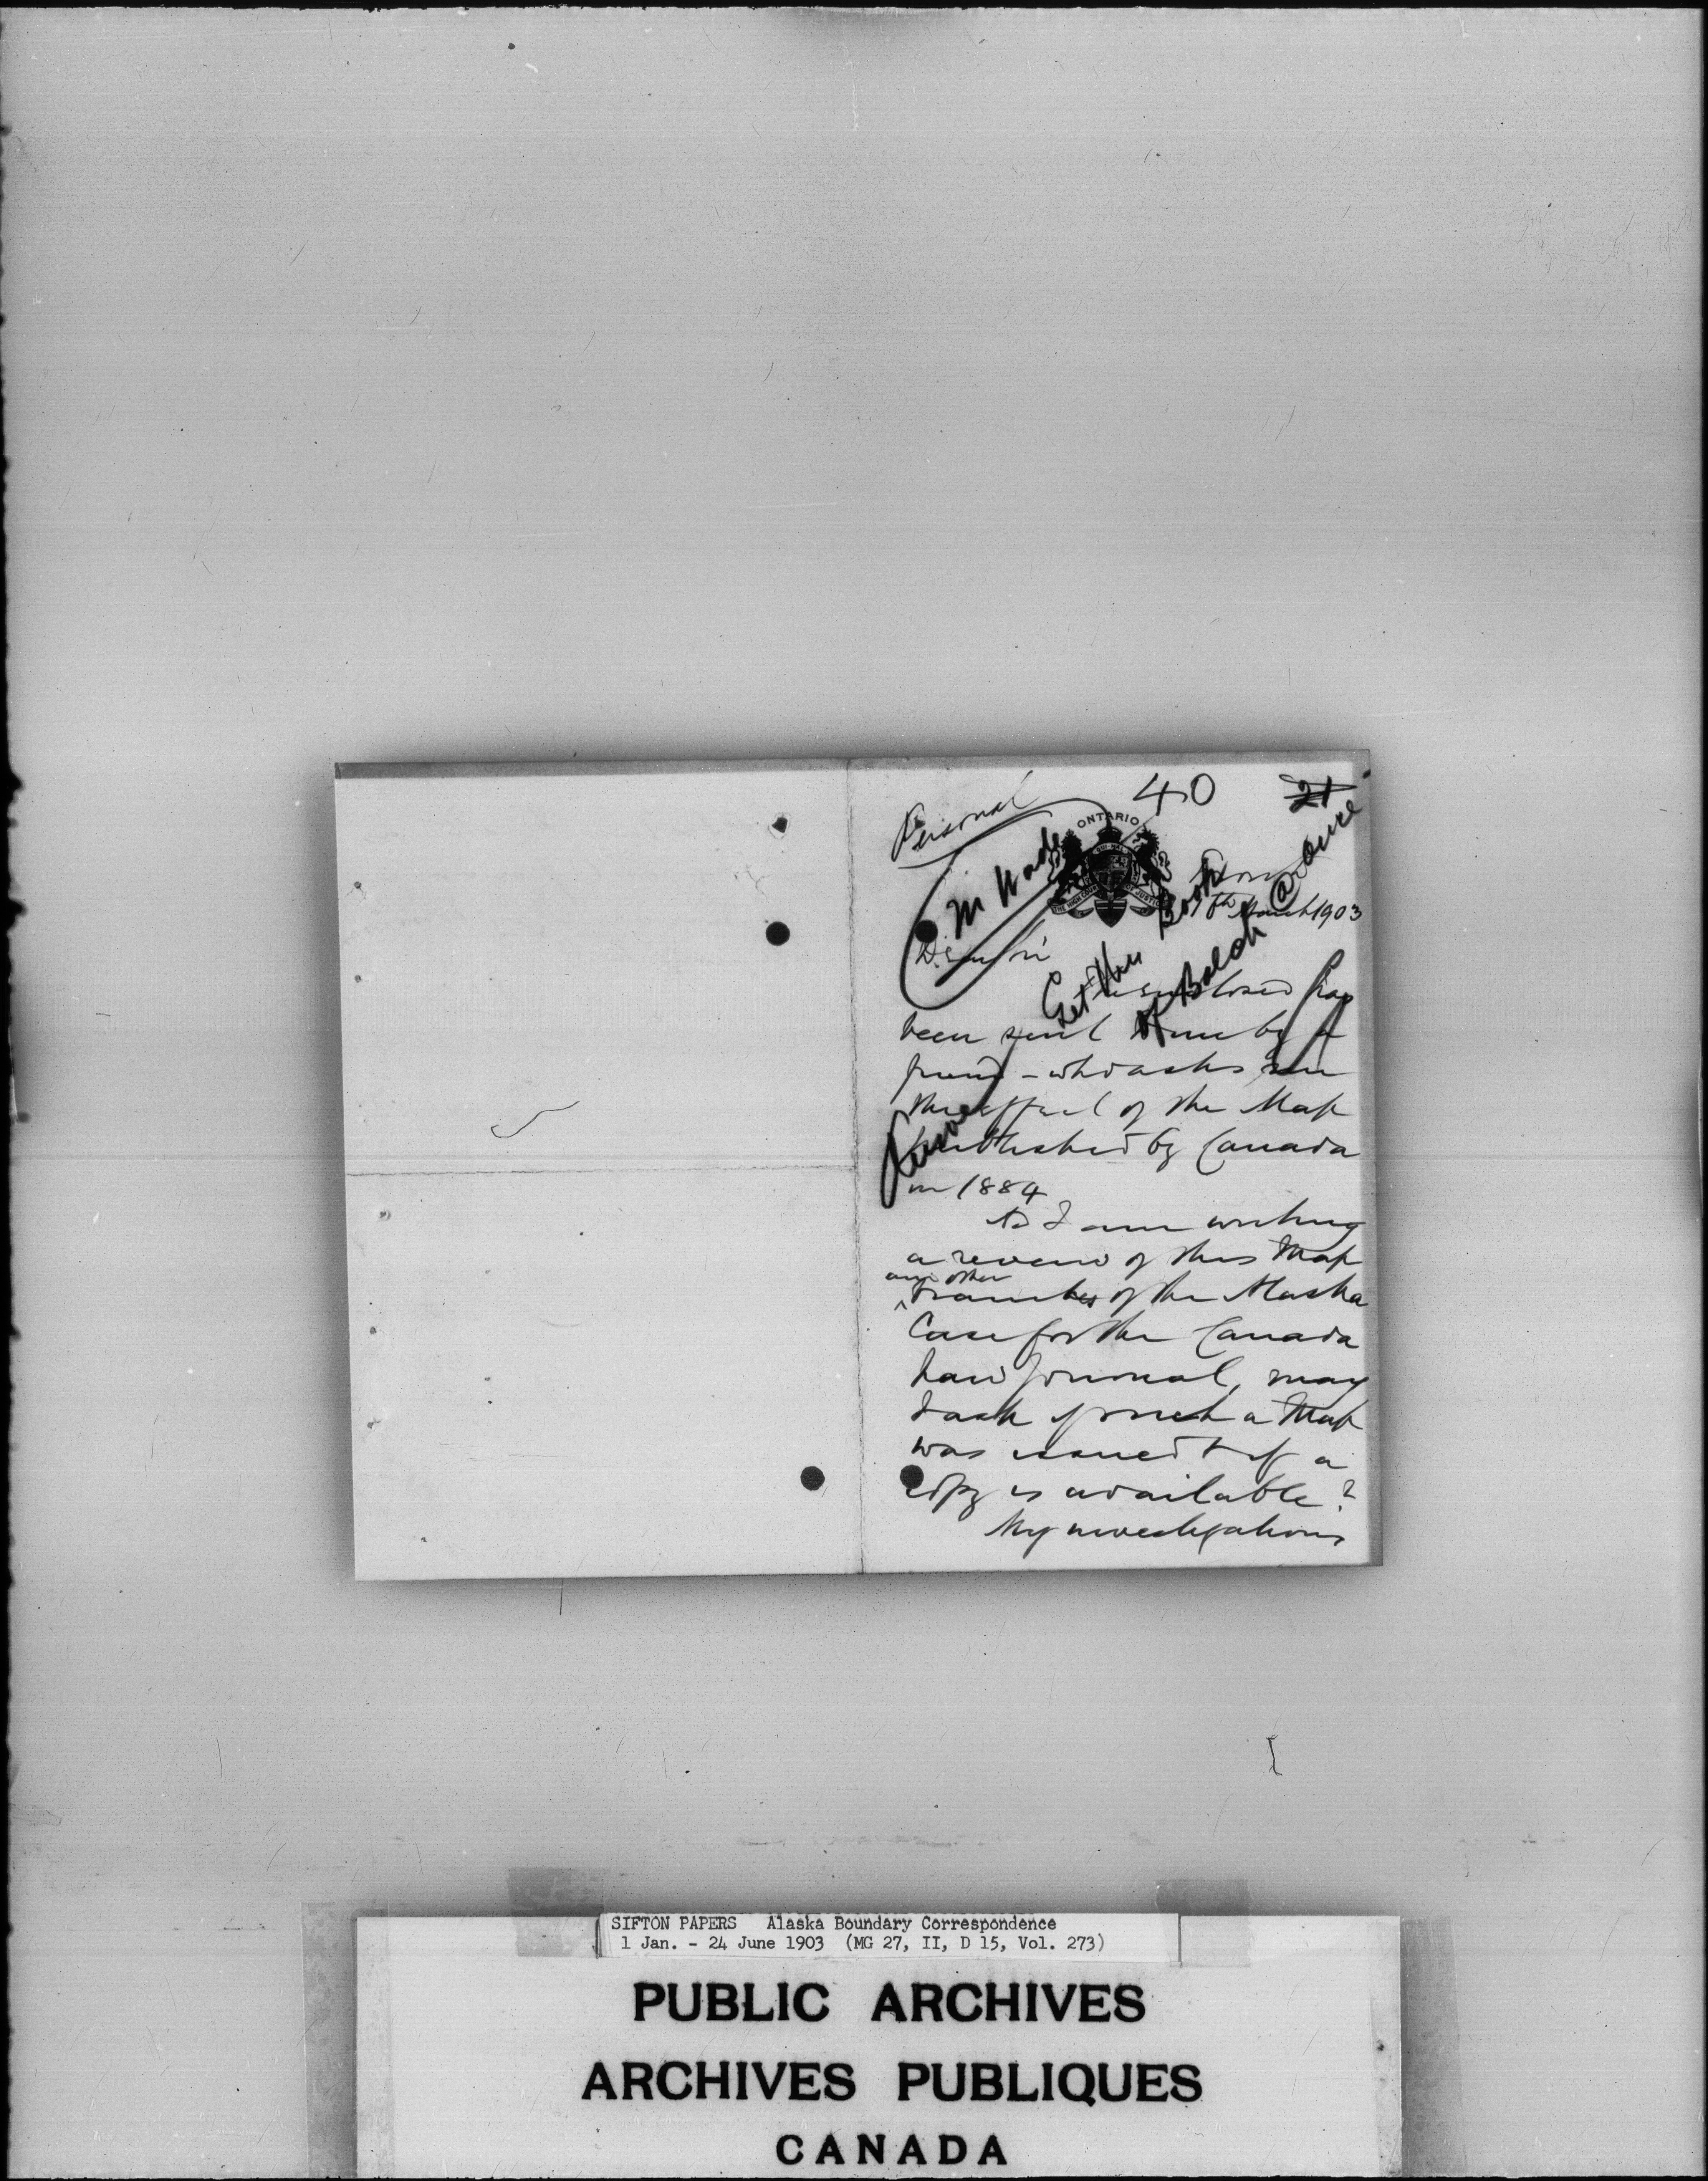 Personal
40
21
ONTARIO
THE HIGH COURT OF JUSTICE
Mr Wade
Get this Book
of Balch @ once
7th March 1903
Dear Sir
The enclosed has
been sent to me by a
friend - who asks me
the effect of the Map
published by Canada
in 1884
As I am writing
a review of this Map
and other
branches of the Alaska
Case for the Canada
Law Journal, may
I ask if such a Map
was issued & if a
copy is available?
My investigations
SIFTON PAPERS Alaska Boundary Correspondence
1 Jan. - 24 June 1903 (MG 27, II, D 15, Vol. 273)
PUBLIC ARCHIVES
ARCHIVES PUBLIQUES
CANADA